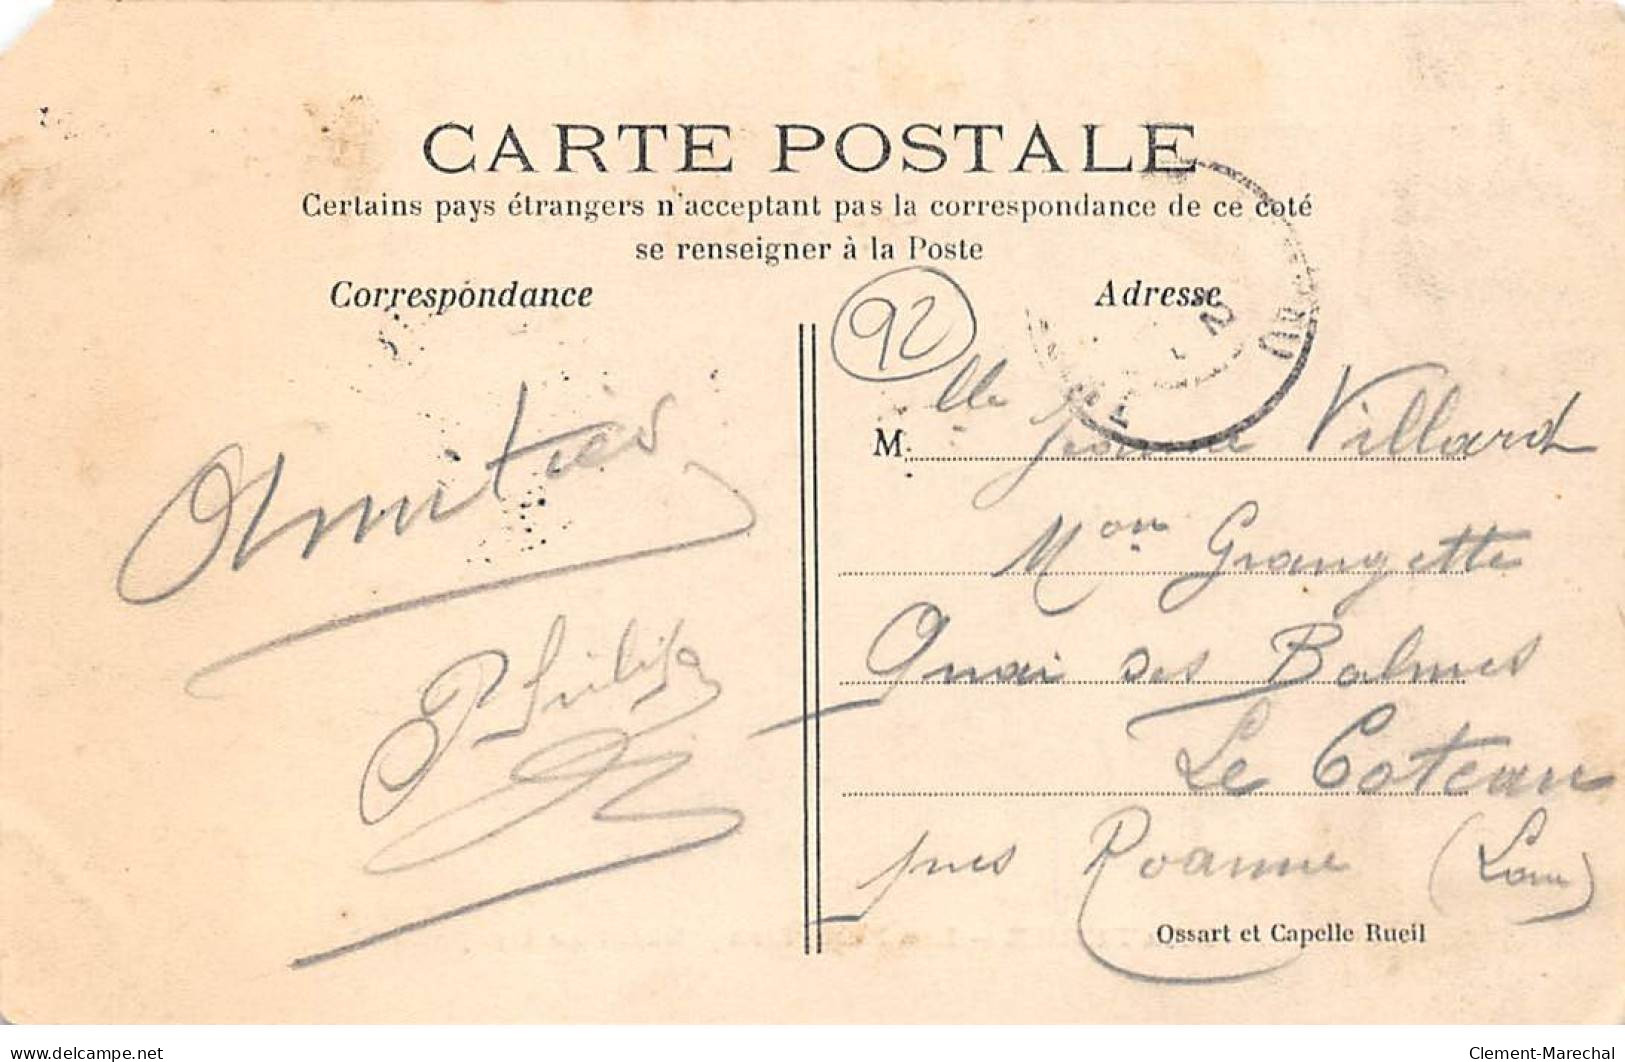 CARTE POSTALE
Certains pays étrangers n'acceptant pas la correspondance de ce coté
se renseigner à la Poste
Correspondance
Adresse
92
Amitiés
M.lle Jeanne Villard
Mon Grangette
Quai des Balmes
Le Coteau
près Roanne (Loire)
Ossart et Capelle Rueil
www.delcampe.net
Clement-Marechal